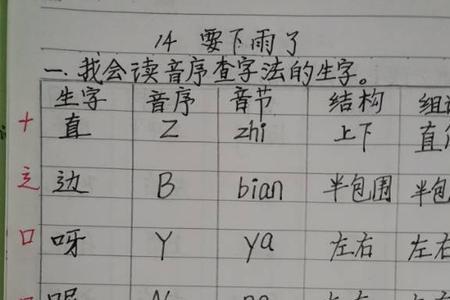 14 要下雨了
一.我会读音序查字法的生字。
生字 音序 音节 结构 组
十 直 Z zhi 上下 直
辶 边 B bian 半包围 半包
口 呀 Y ya 左右 左